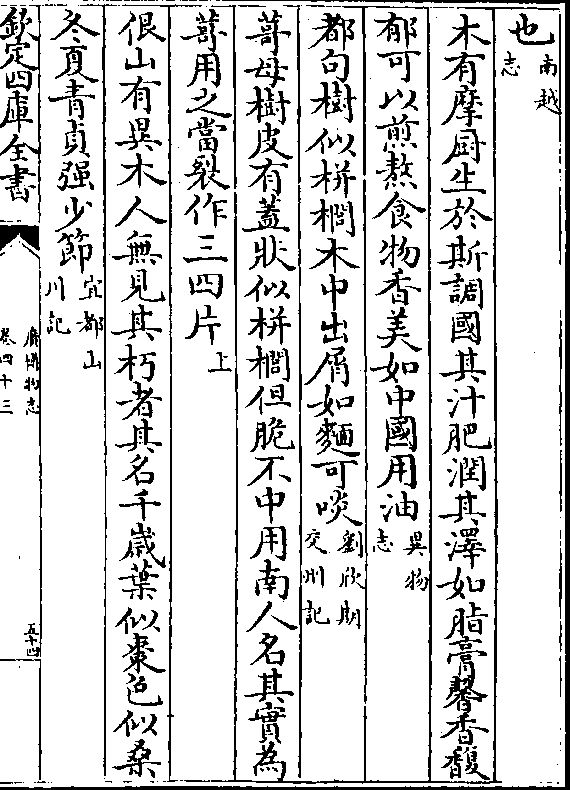 也南越志
木有摩厨生於斯調國其汁肥潤其澤如脂膏馨香馥
郁可以煎熬食物香美如中國用油異物志
都句樹似栟櫚木中出屑如麵可啖劉欣期交州記
蒪母樹皮有蓋狀似栟櫚但脆不中用南人名其實為
蒪用之當裂作三四片上
佷山有異木人無見其朽者其名千歳葉似棗色似桑
冬夏青貞强少節宜都山川記
欽定四庫全書
廣博物志
卷四十三
五十四